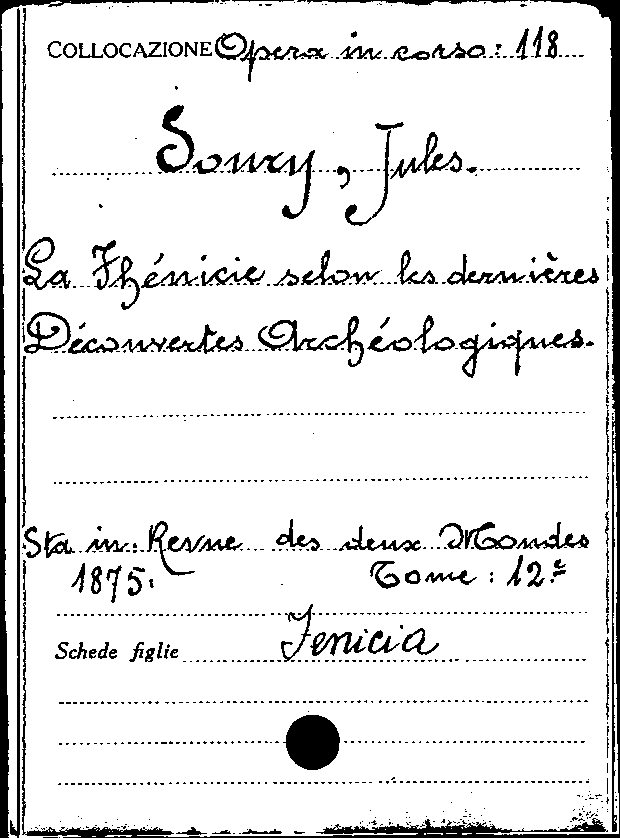 COLLOCAZIONE Opera in corso: 118
Soury, Jules.
La Phénicie selon les dernières
Découvertes Archéologiques.
Sta in: Revue des deux Mondes
1875. Tome: 12.e
Schede figlie Fenicia